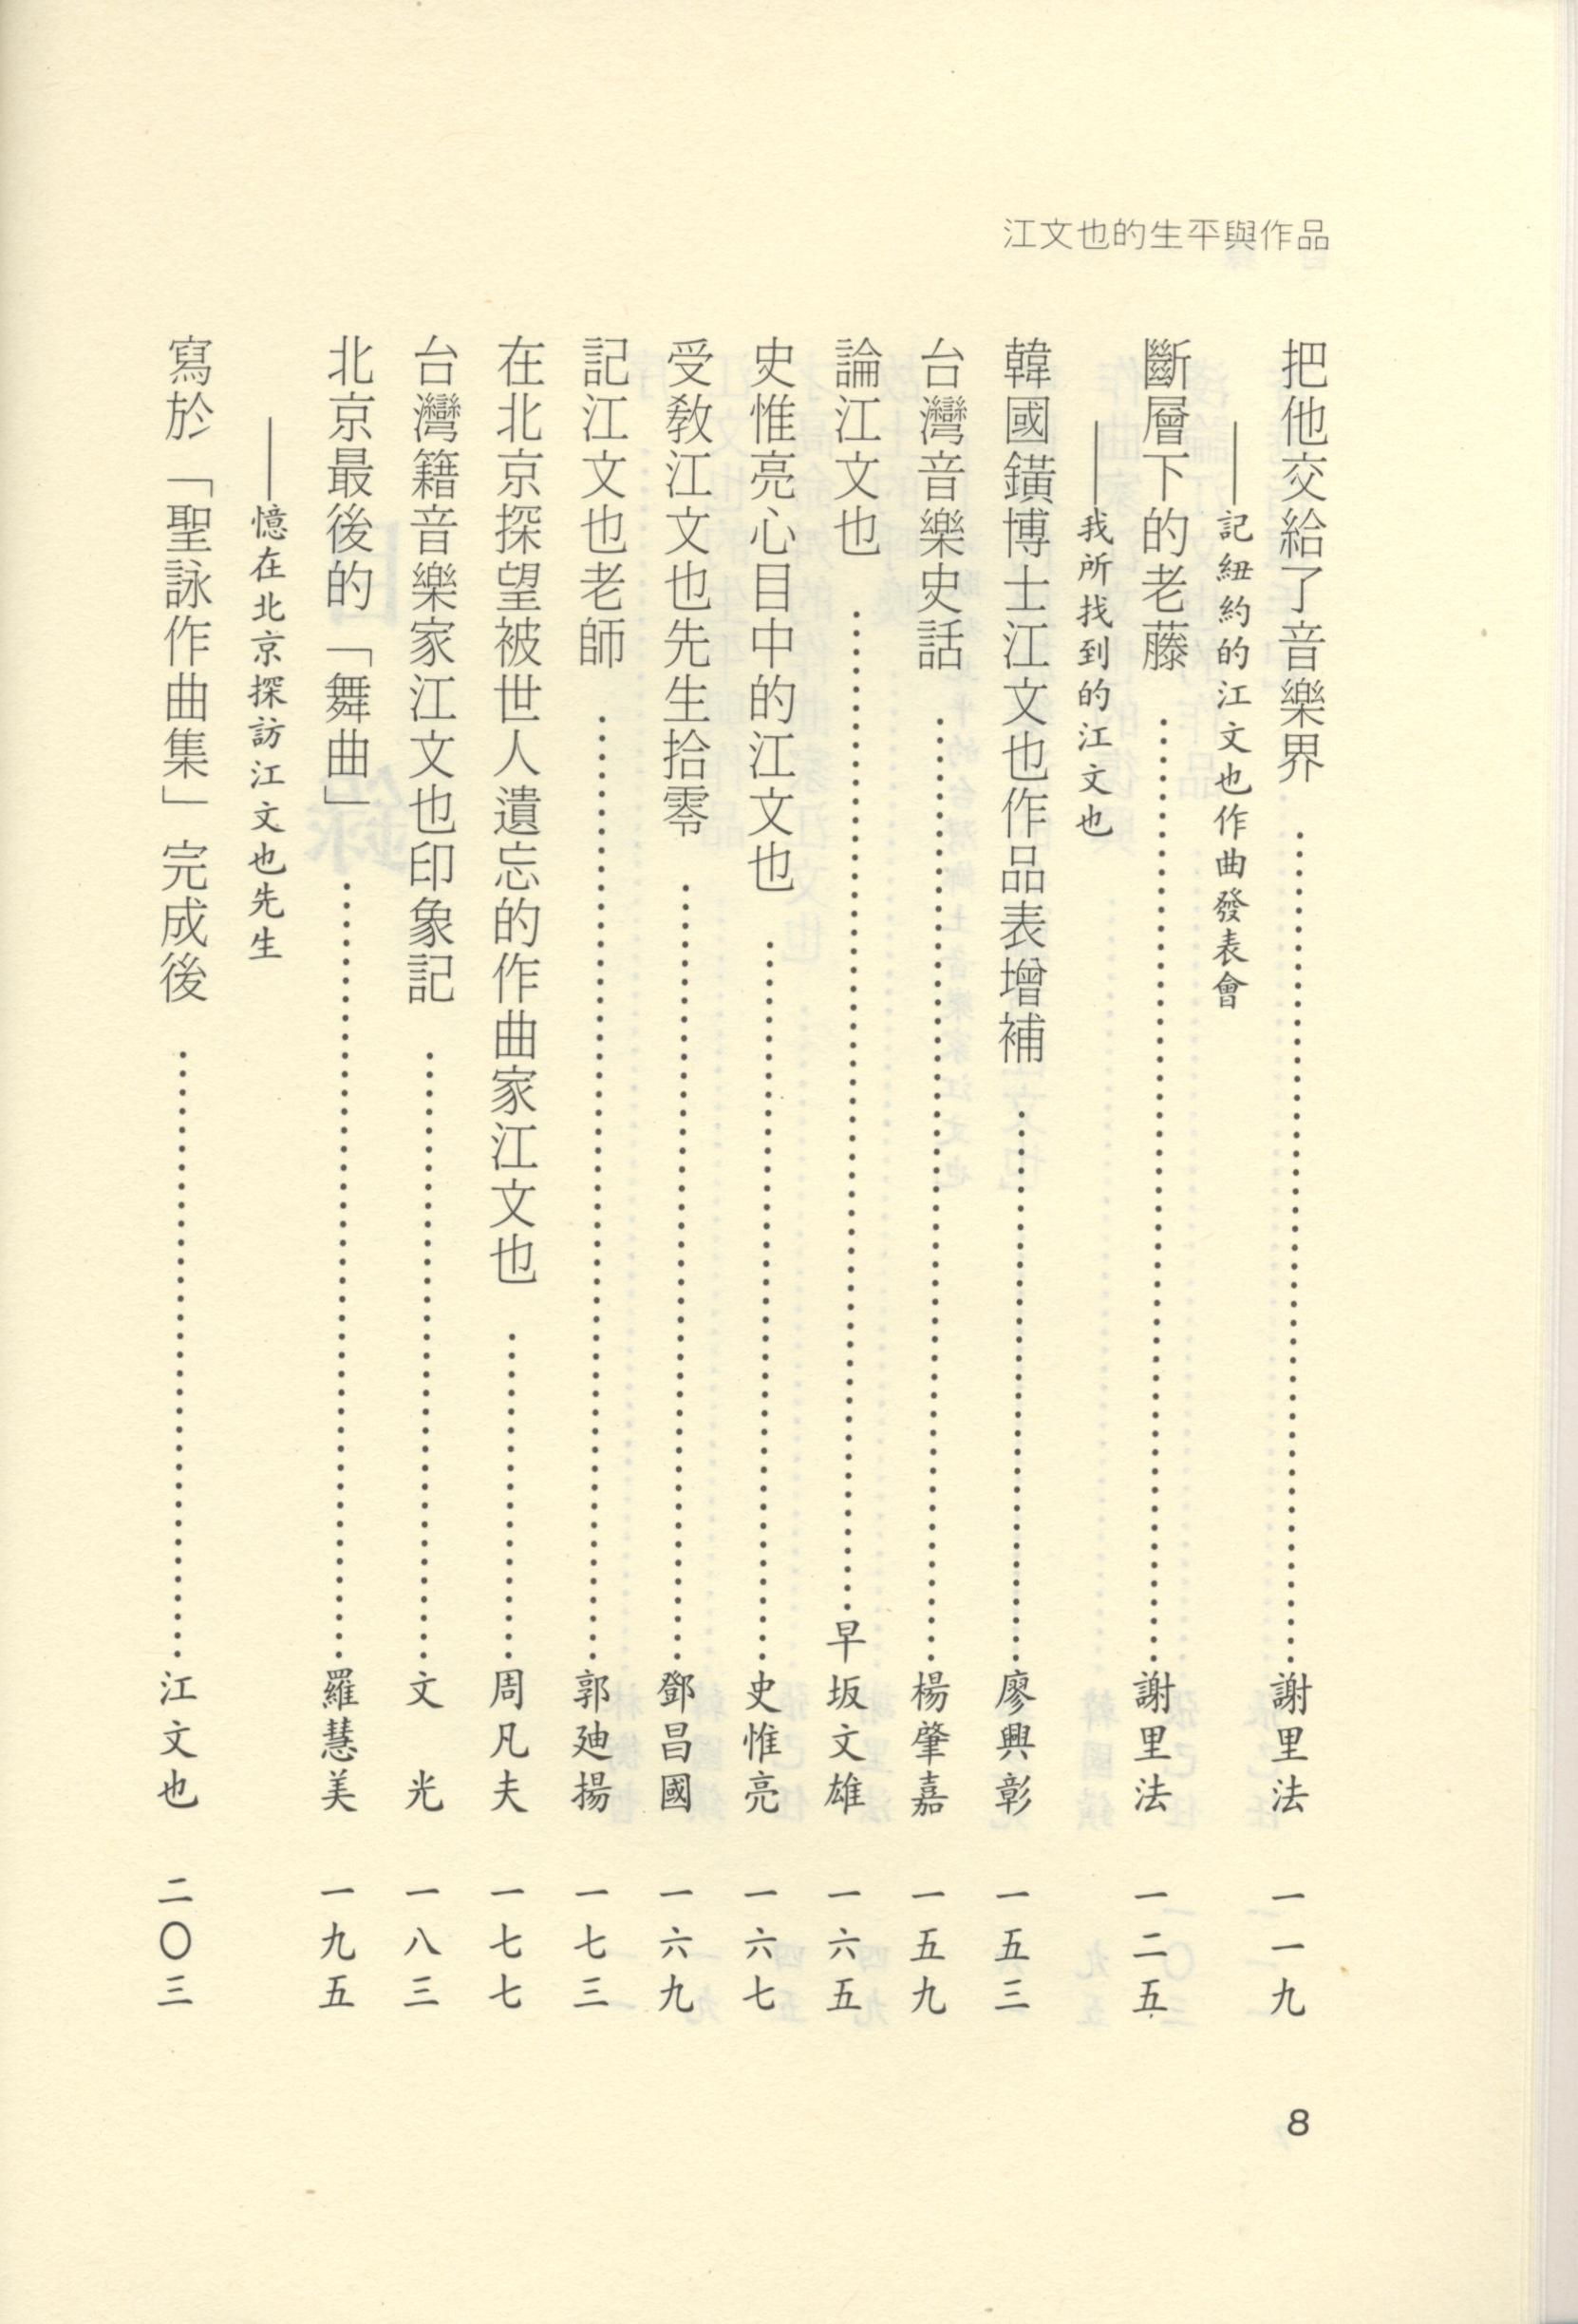 江文也的生平與作品
把他交給了音樂界……謝里法 一一九
——記紐約的江文也作曲發表會
斷層下的老藤……謝里法 一二五
——我所找到的江文也
韓國鐄博士江文也作品表增補……廖興彰 一五三
台灣音樂史話……楊肇嘉 一五九
論江文也……早坂文雄 一六五
史惟亮心目中的江文也……史惟亮 一六七
受教江文也先生拾零……鄧昌國 一六九
記江文也老師……郭廸揚 一七三
在北京探望被世人遺忘的作曲家江文也……周凡夫 一七七
台灣籍音樂家江文也印象記……文 光 一八三
北京最後的「舞曲」……羅慧美 一九五
——憶在北京探訪江文也先生
寫於「聖詠作曲集」完成後……江文也 二〇三
8